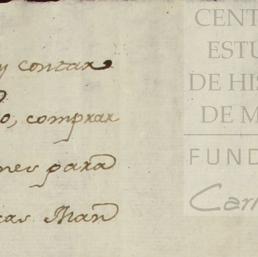 y contar
o, comprar
nes para
cas Man
CENT
ESTU
DE HIS
DE M
FUND
Car